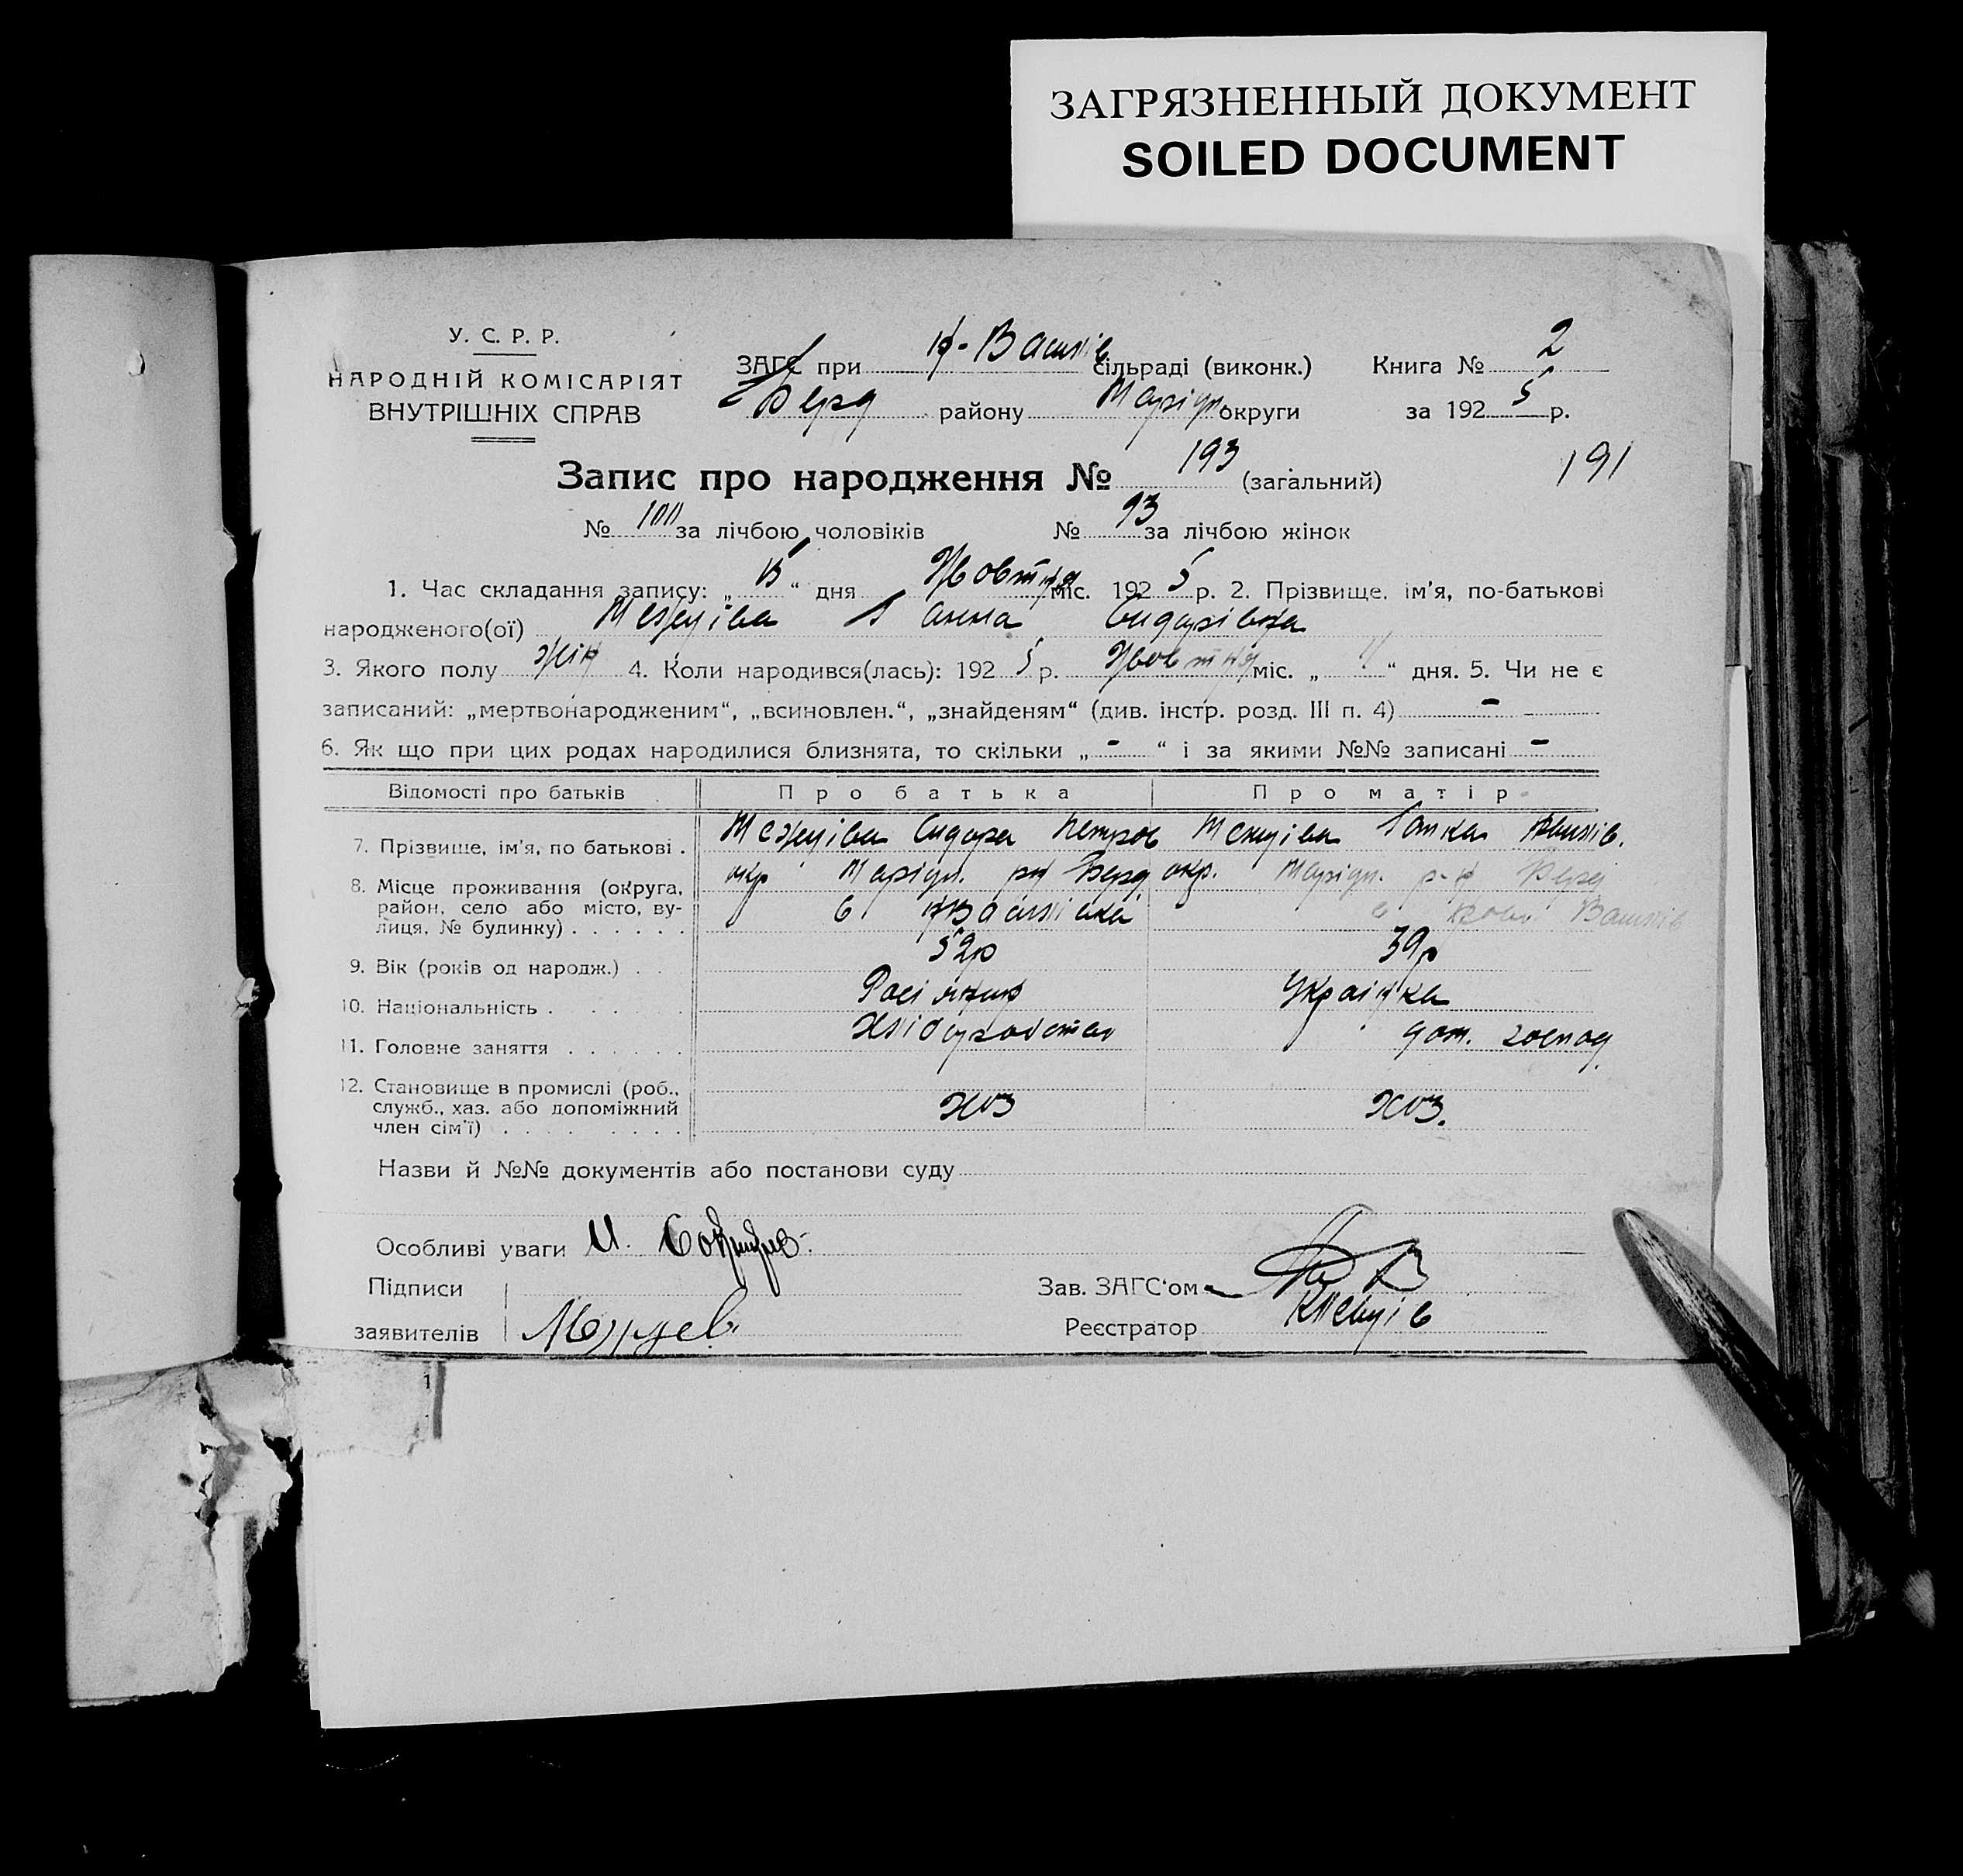 ЗАГРЯЗНЕННЫЙ ДОКУМЕНТ
SOILED DOCUMENT
У. С. Р. Р.
НАРОДНІЙ КОМІСАРІЯТ
ВНУТРІШНІХ СПРАВ
ЗАГС при Н-Василів сільраді (виконк.) Книга № 2
Берд району Маріуп. округи за 1925 р.
Запис про народження № 193 (загальний) 191
№ 100 за лічбою чоловіків № 93 за лічбою жінок
1. Час складання запису: „15“ дня Жовтня міс. 1925 р. 2. Прізвище, ім'я, по-батькові
народженого(ої) Ганна Сидорівна
3. Якого полу жін 4. Коли народився(лась): 1925 р. Жовтня міс. „11“ дня. 5. Чи не є
записаний: „мертвонародженим“, „всиновлен.“, „знайденям“ (див. інстр. розд. III п. 4) -
6. Як що при цих родах народилися близнята, то скільки „-“ і за якими №№ записані -
Відомості про батьків Про батька Про матір
7. Прізвище, ім'я, по батькові . Сидора Петров Василів.
8. Місце проживання (округа, окр Маріуп. рн Берд окр. Маріуп. р-н Берд
район, село або місто, ву- с НВасилівка с Ново Василів
лиця, № будинку) . . . . . .
9. Вік (років од народж.) . . 52р 39р
10. Національність . . . . . . Росіянин Українка
11. Головне заняття . . . . . . Хліборобство дом. господ.
12. Становище в промислі (роб.,
служб., хаз. або допоміжний хоз хоз.
член сім'ї) . . . . . . . .
Назви й №№ документів або постанови суду
Особливі уваги И.
Підписи Зав. ЗАГС'ом
заявителів Реєстратор
1